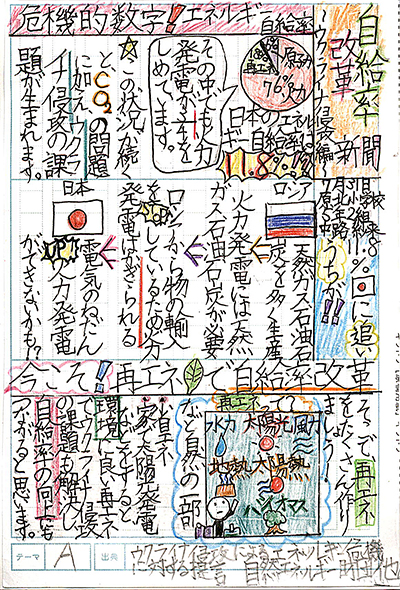 自給率
改革
新聞
〜ウクライナ侵攻編〜
危機的数字!エネルギー自給率
原子力
再エネ
76%火力
日本の自給エネルギー率は
11.8%
その中でも火力
発電が%を
しめています。
この状況が続
くとCO₂の問題
に加え、ウクラ
イナ侵攻の課
題が生まれます。
日本に追いうちが!!
ロシア
天然ガス石油石
炭を多く生産
火力発電は天然
ガス石油石炭が必要
ロシアから物の輸入
をしているため火力
発電はかぎられる
日本
電気のねだん
UP!
火力発電
ができないかも!?
今こそ!再エネで自給率改革
そこで再エネ
をたくさん作り
ましょう!
再エネって?
水力
太陽光
風力
地熱
太陽熱
バイオマス
など自然の一部
省エネ
家で太陽光発電
などをすると
環境に良い再エネ
ウクライナ侵攻
課題も解決し
自給率の向上にも
つながると思います。
テーマ
A
出典
ウクライナ侵攻によるエネルギー危機
に対する提言 自然エネルギー財団 他